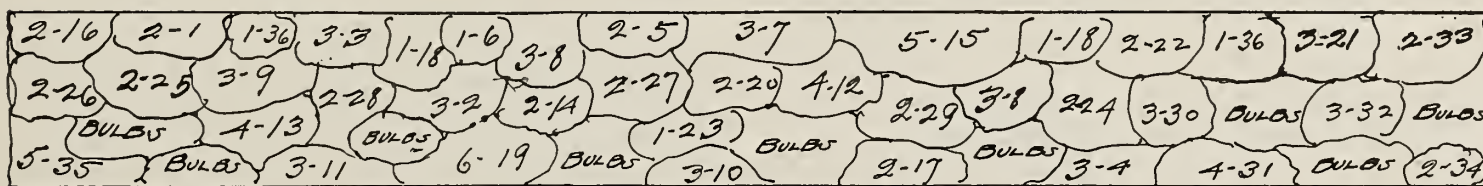 2-16 2-1 1-36 3-3 1-18 1-6 3-8 2-5 3-7 5-15 1-18 2-22 1-36 3-21 2-33
2-26 2-25 3-9 2-28 3-2 2-14 2-27 2-20 4-12 2-29 3-8 2-24 3-30 BULBS 3-32 BULBS
BULBS 4-13 BULBS 1-23 BULBS BULBS
5-35 BULBS 3-11 6-19 BULBS 3-10 2-17 3-4 4-31 BULBS 2-34